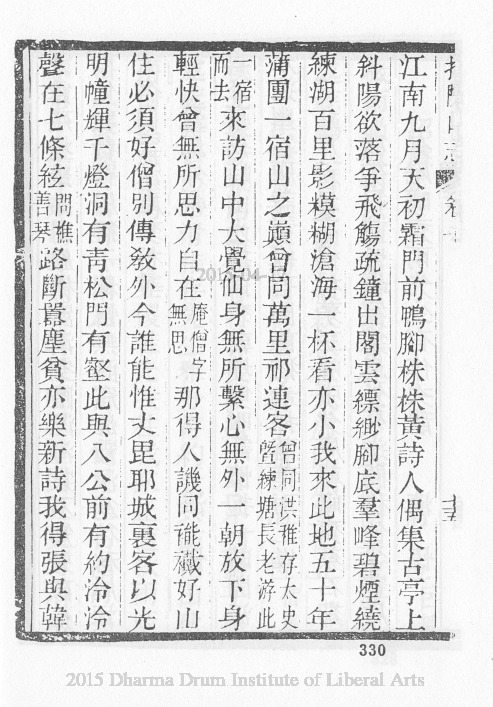 江南九月天初霜門前鴨腳株株黃詩人偶集古亭上
斜陽欲落爭飛觴疏鐘出閣雲縹緲腳底羣峰碧煙繞
練湖百里影模糊滄海一杯看亦小我來此地五十年
蒲團一宿山之巔曾同萬里祁連客曾同洪稚存太史暨練塘長老游此
一宿而去來訪山中大覺仙身無所繫心無外一朝放下身
輕快曾無所思力自在庵僧字無思那得人譏同褦襶好山
住必須好僧別傳敎外今誰能惟丈毘耶城裏客以光
明幢輝千燈洞有靑松門有壑此與八公前有約泠泠
聲在七條絃問樵善琴路斷囂塵貧亦樂新詩我得張與韓
330
2015 Dharma Drum Institute of Liberal Arts